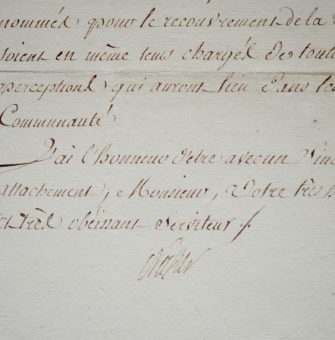 nommés pour le recouvrement de la
soient en même tems chargés de toute
perceptions qui auront lieu dans le
Communauté
J'ai l'honneur d'etre avec un Sinc
attachement, Monsieur, Votre très h
et très obéissant Serviteur ./.